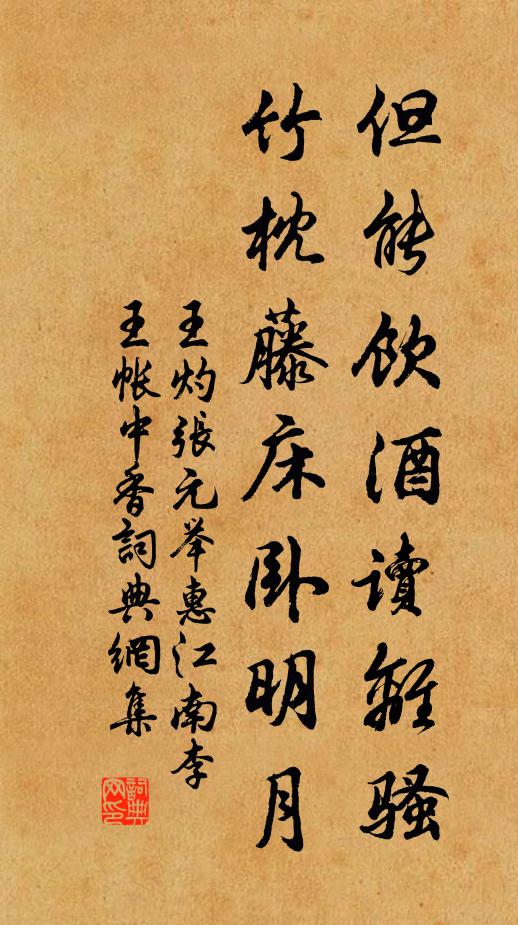 但能飲酒讀離騷
竹枕藤床臥明月
王灼張元举惠江南李
王帐中香詞典網集
詞典
网印